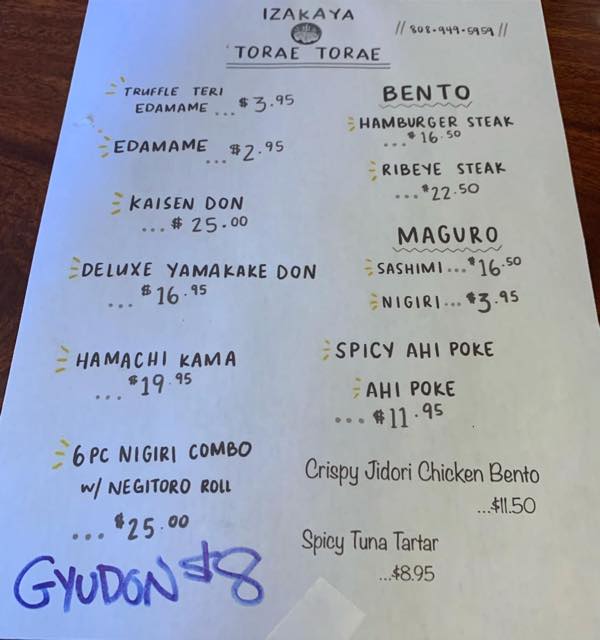 IZAKAYA
TORAE TORAE
// 808-949-5959 //
TRUFFLE TERI
EDAMAME ... $3.95
EDAMAME
... $2.95
KAISEN DON
... $25.00
DELUXE YAMAKAKE DON
... $16.95
HAMACHI KAMA
... $19.95
6PC NIGIRI COMBO
W/ NEGITORO ROLL
... $25.00
GYUDON $8
BENTO
HAMBURGER STEAK
... $16.50
RIBEYE STEAK
... $22.50
MAGURO
SASHIMI... $16.50
NIGIRI... $3.95
SPICY AHI POKE
AHI POKE
... $11.95
Crispy Jidori Chicken Bento
...$11.50
Spicy Tuna Tartar
...$8.95